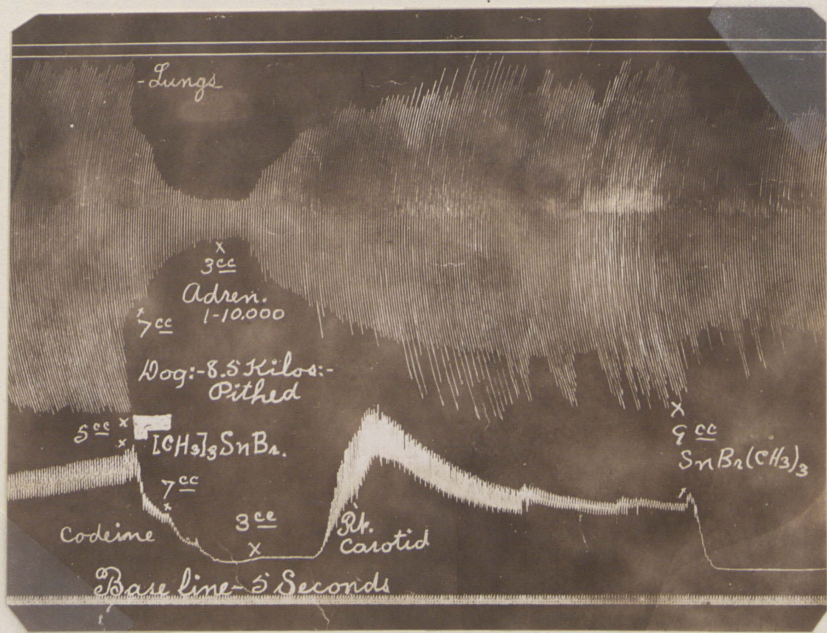 -Lungs
x
3 cc
Adren.
1-10.000
x
7 cc
Dog:-8.5 Kilos:-
Pithed
5 cc x
x
[CH3]3SnBr.
7 cc
x
x
9 cc
SnBr(CH3)3
x
Codeine
3 cc
x
Rt.
Carotid
Base line-5 Seconds